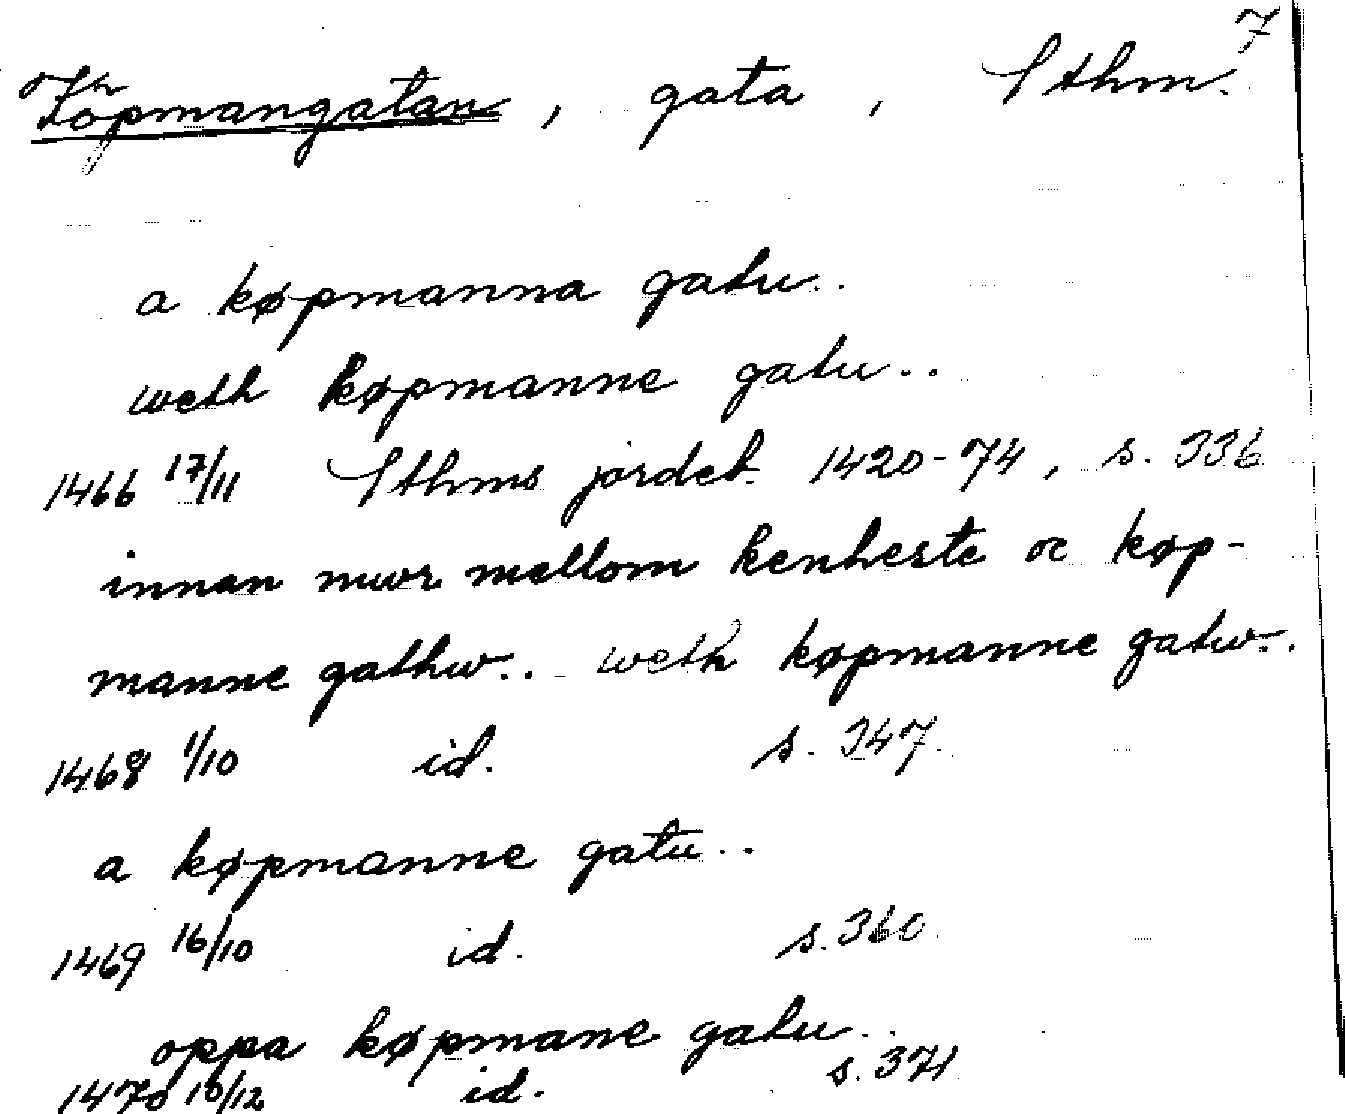 7
Köpmangatan, gata, Sthm.
a køpmanna gatu..
weth køpmanne gatu..
1466 17/11 Sthms jordeb. 1420-74, s. 336
innan mwr mellom kenheste oc køp-
manne gathw.. weth køpmanne gatw..
1468 1/10 id. s. 347.
a køpmanne gatu..
1469 16/10 id. s. 360.
oppa køpmane gatu..
1470 10/12 id. s. 371